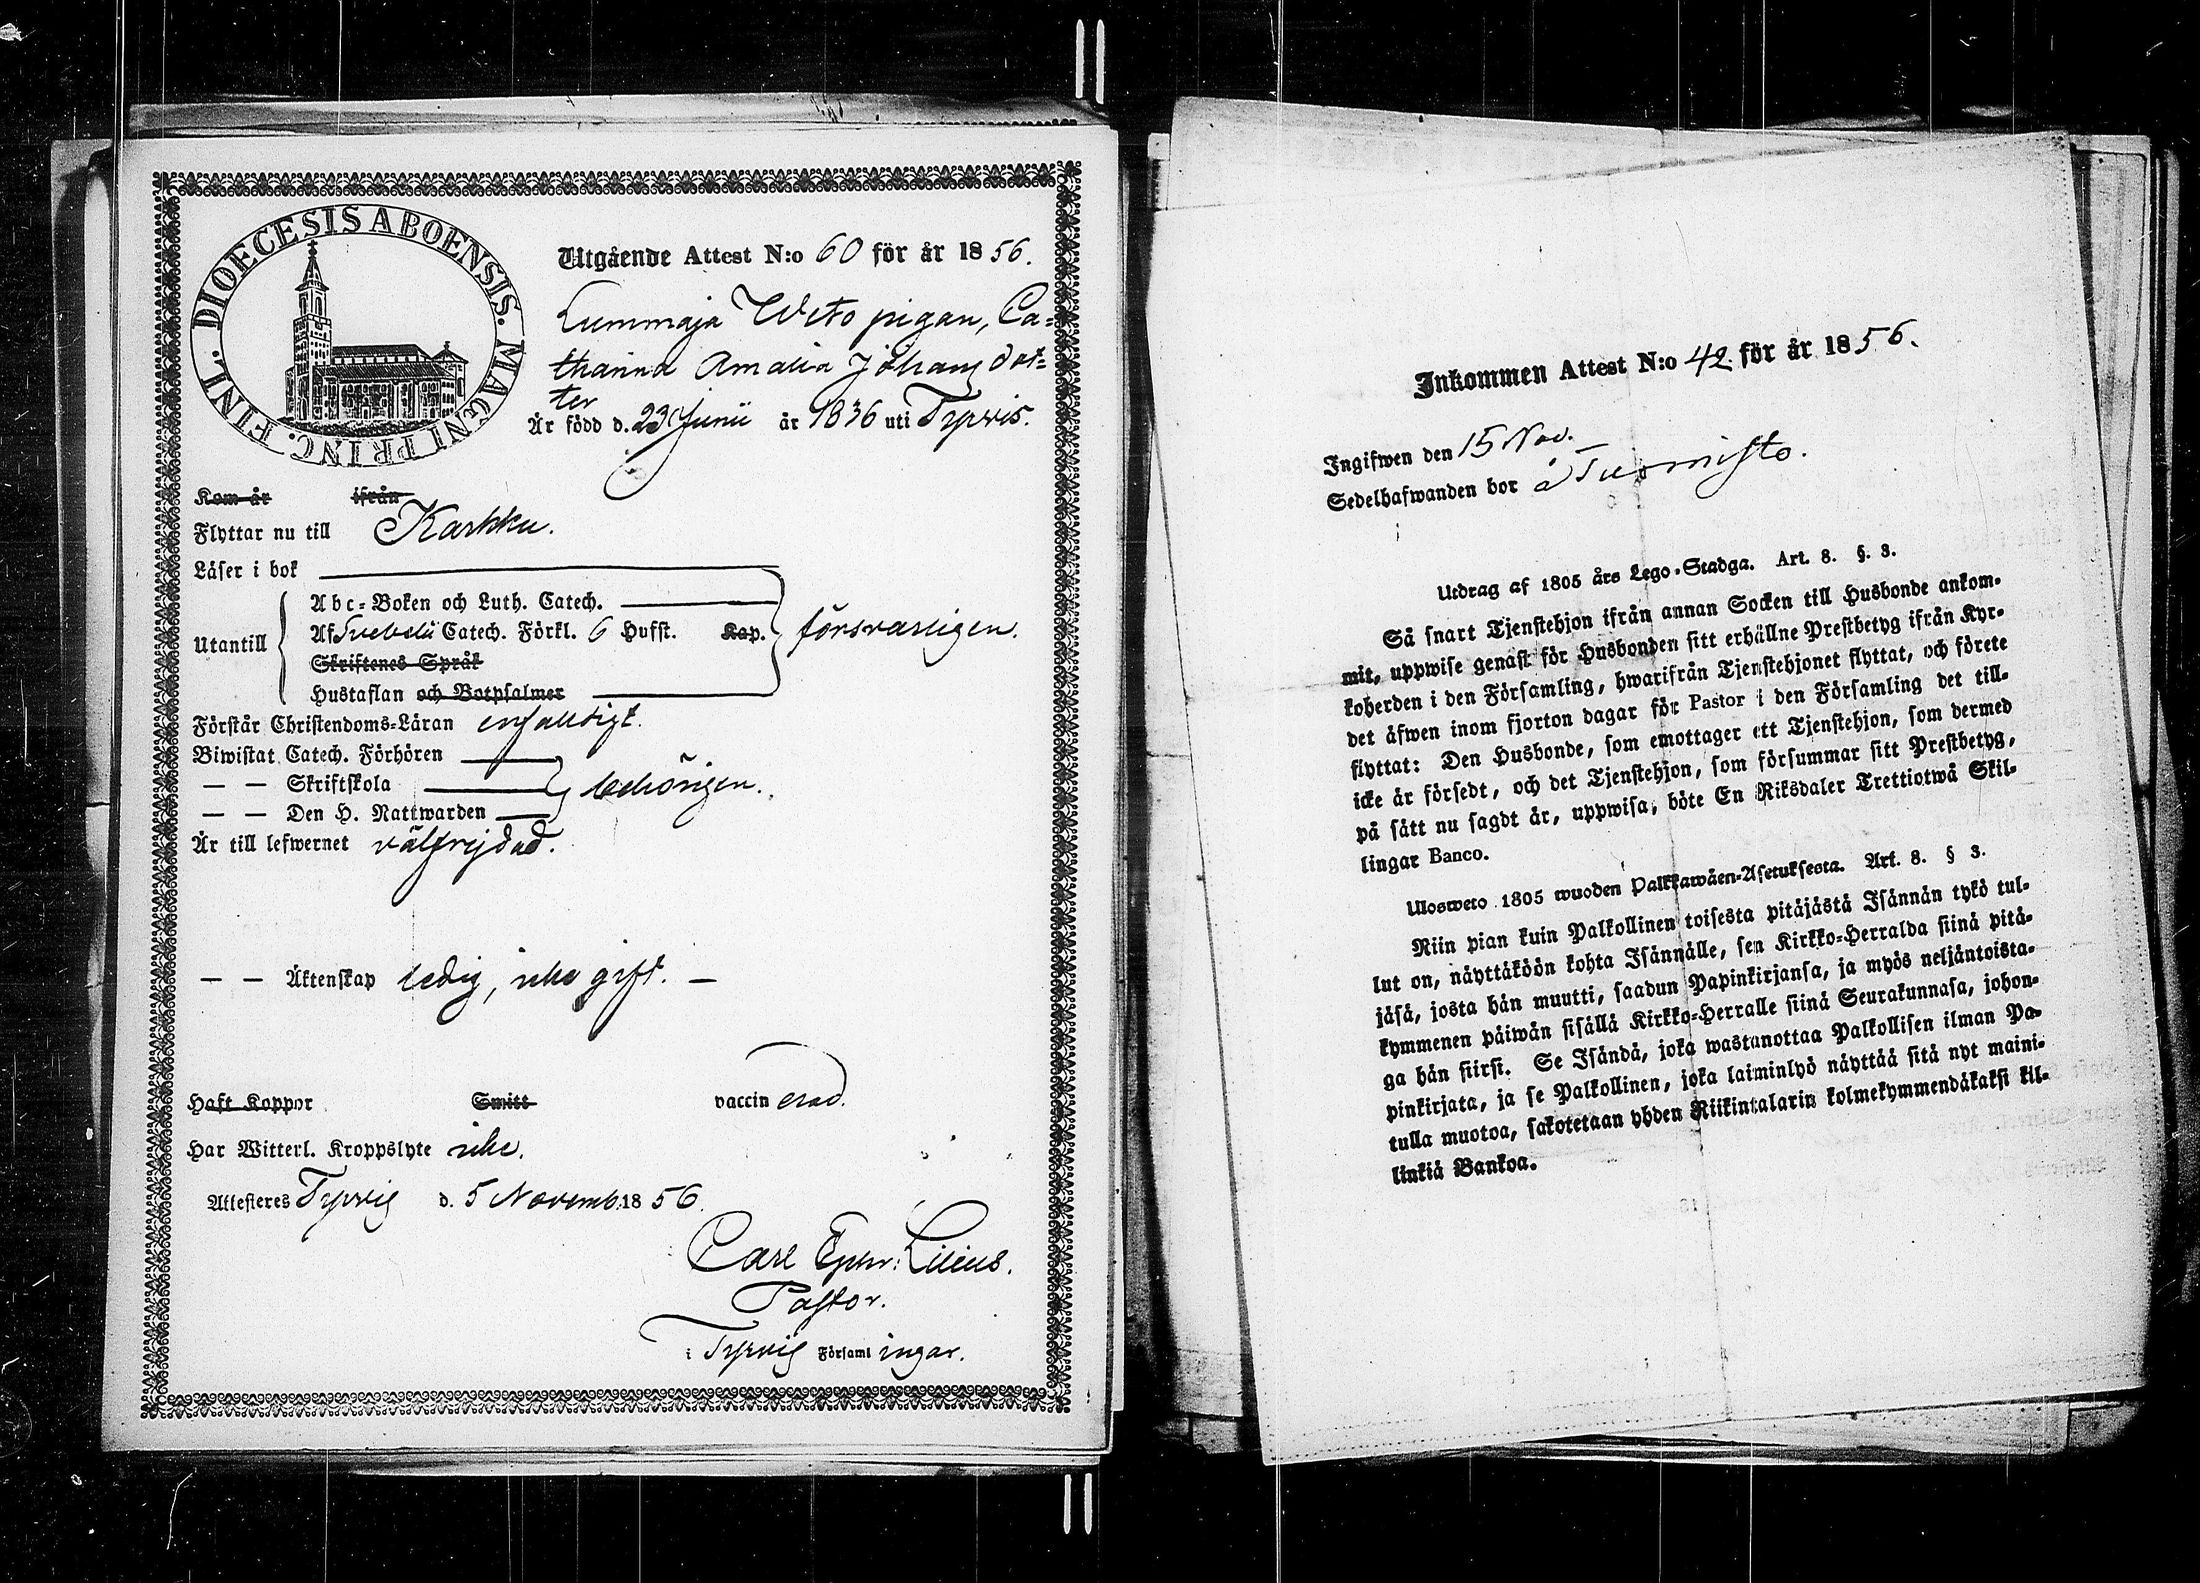 DIOECESIS ABOENSIS. MAGNI PRINC. FINL.
Utgående Attest N:o 60 för år 1856.
Lummaja Weto pigan, Ca=
tharina Amalia Johans dot=
ter
Är född d. 23 Junii år 1836 uti Tyrvis.
Kom år ifrån
Flyttar nu till Karkku.
Läser i bok
Abc-Boken och Luth. Catech.
Utantill
Af Svebelii Catech. Förkl. 6 Hufst. Kap. försvarligen.
Skriftenes Språk
Hustaflan och Botpsalmer
Förstår Christendoms-Läran enfaldigt.
Biwistat Catech. Förhören
— — Skriftskola behörigen.
— — Den H. Nattwarden
Är till lefwernet välfrejdad.
— — Äktenskap ledig, icke gift. —
Haft Koppor Smitt vaccinerad.
Har Witterl. Kroppslyte icke.
Attesteres Tyrvis d. 5 Novemb. 1856.
Carl Lilius.
Pastor.
i Tyrvis Församlingar.
Inkommen Attest N:o 42. för år 1856.
Ingifwen den 15 Nov.
Sedelhafwanden bor å Tuomisto.
Utdrag af 1805 års Lego-Stadga. Art. 8. §. 3.
Så snart Tjenstehjon ifrån annan Socken till Husbonde ankom-
mit, uppwise genast för Husbonden sitt erhållne Prestbetyg ifrån Kyr-
koherden i den Församling, hwarifrån Tjenstehjonet flyttat, och förete
det äfwen inom fjorton dagar för Pastor i den Församling det till-
flyttat: Den Husbonde, som emottager ett Tjenstehjon, som dermed
icke är försedt, och det Tjenstehjon, som försummar sitt Prestbetyg,
på sätt nu sagdt är, uppwisa, böte En Riksdaler Trettiotwå Skil-
lingar Banco.
Ulosweto 1805 wuoden Palkkawäen-Asetuksesta. Art. 8. § 3.
Niin pian kuin Palkollinen toisesta pitäjästä Isännän tykö tul-
lut on, näyttäköön kohta Isännälle, sen Kirkko-Herralda siinä pitä-
jäsä, josta hän muutti, saadun Papinkirjansa, ja myös neljäntoista-
kymmenen päiwän sisällä Kirkko-Herralle siinä Seurakunnasa, johon-
ga hän siirsi. Se Isändä, joka wastanottaa Palkollisen ilman Pa-
pinkirjata, ja se Palkollinen, joka laiminlyö näyttää sitä nyt maini-
tulla muotoa, sakotetaan yhden Riikintalarin kolmekymmendäkaksi kil-
linkiä Bankoa.